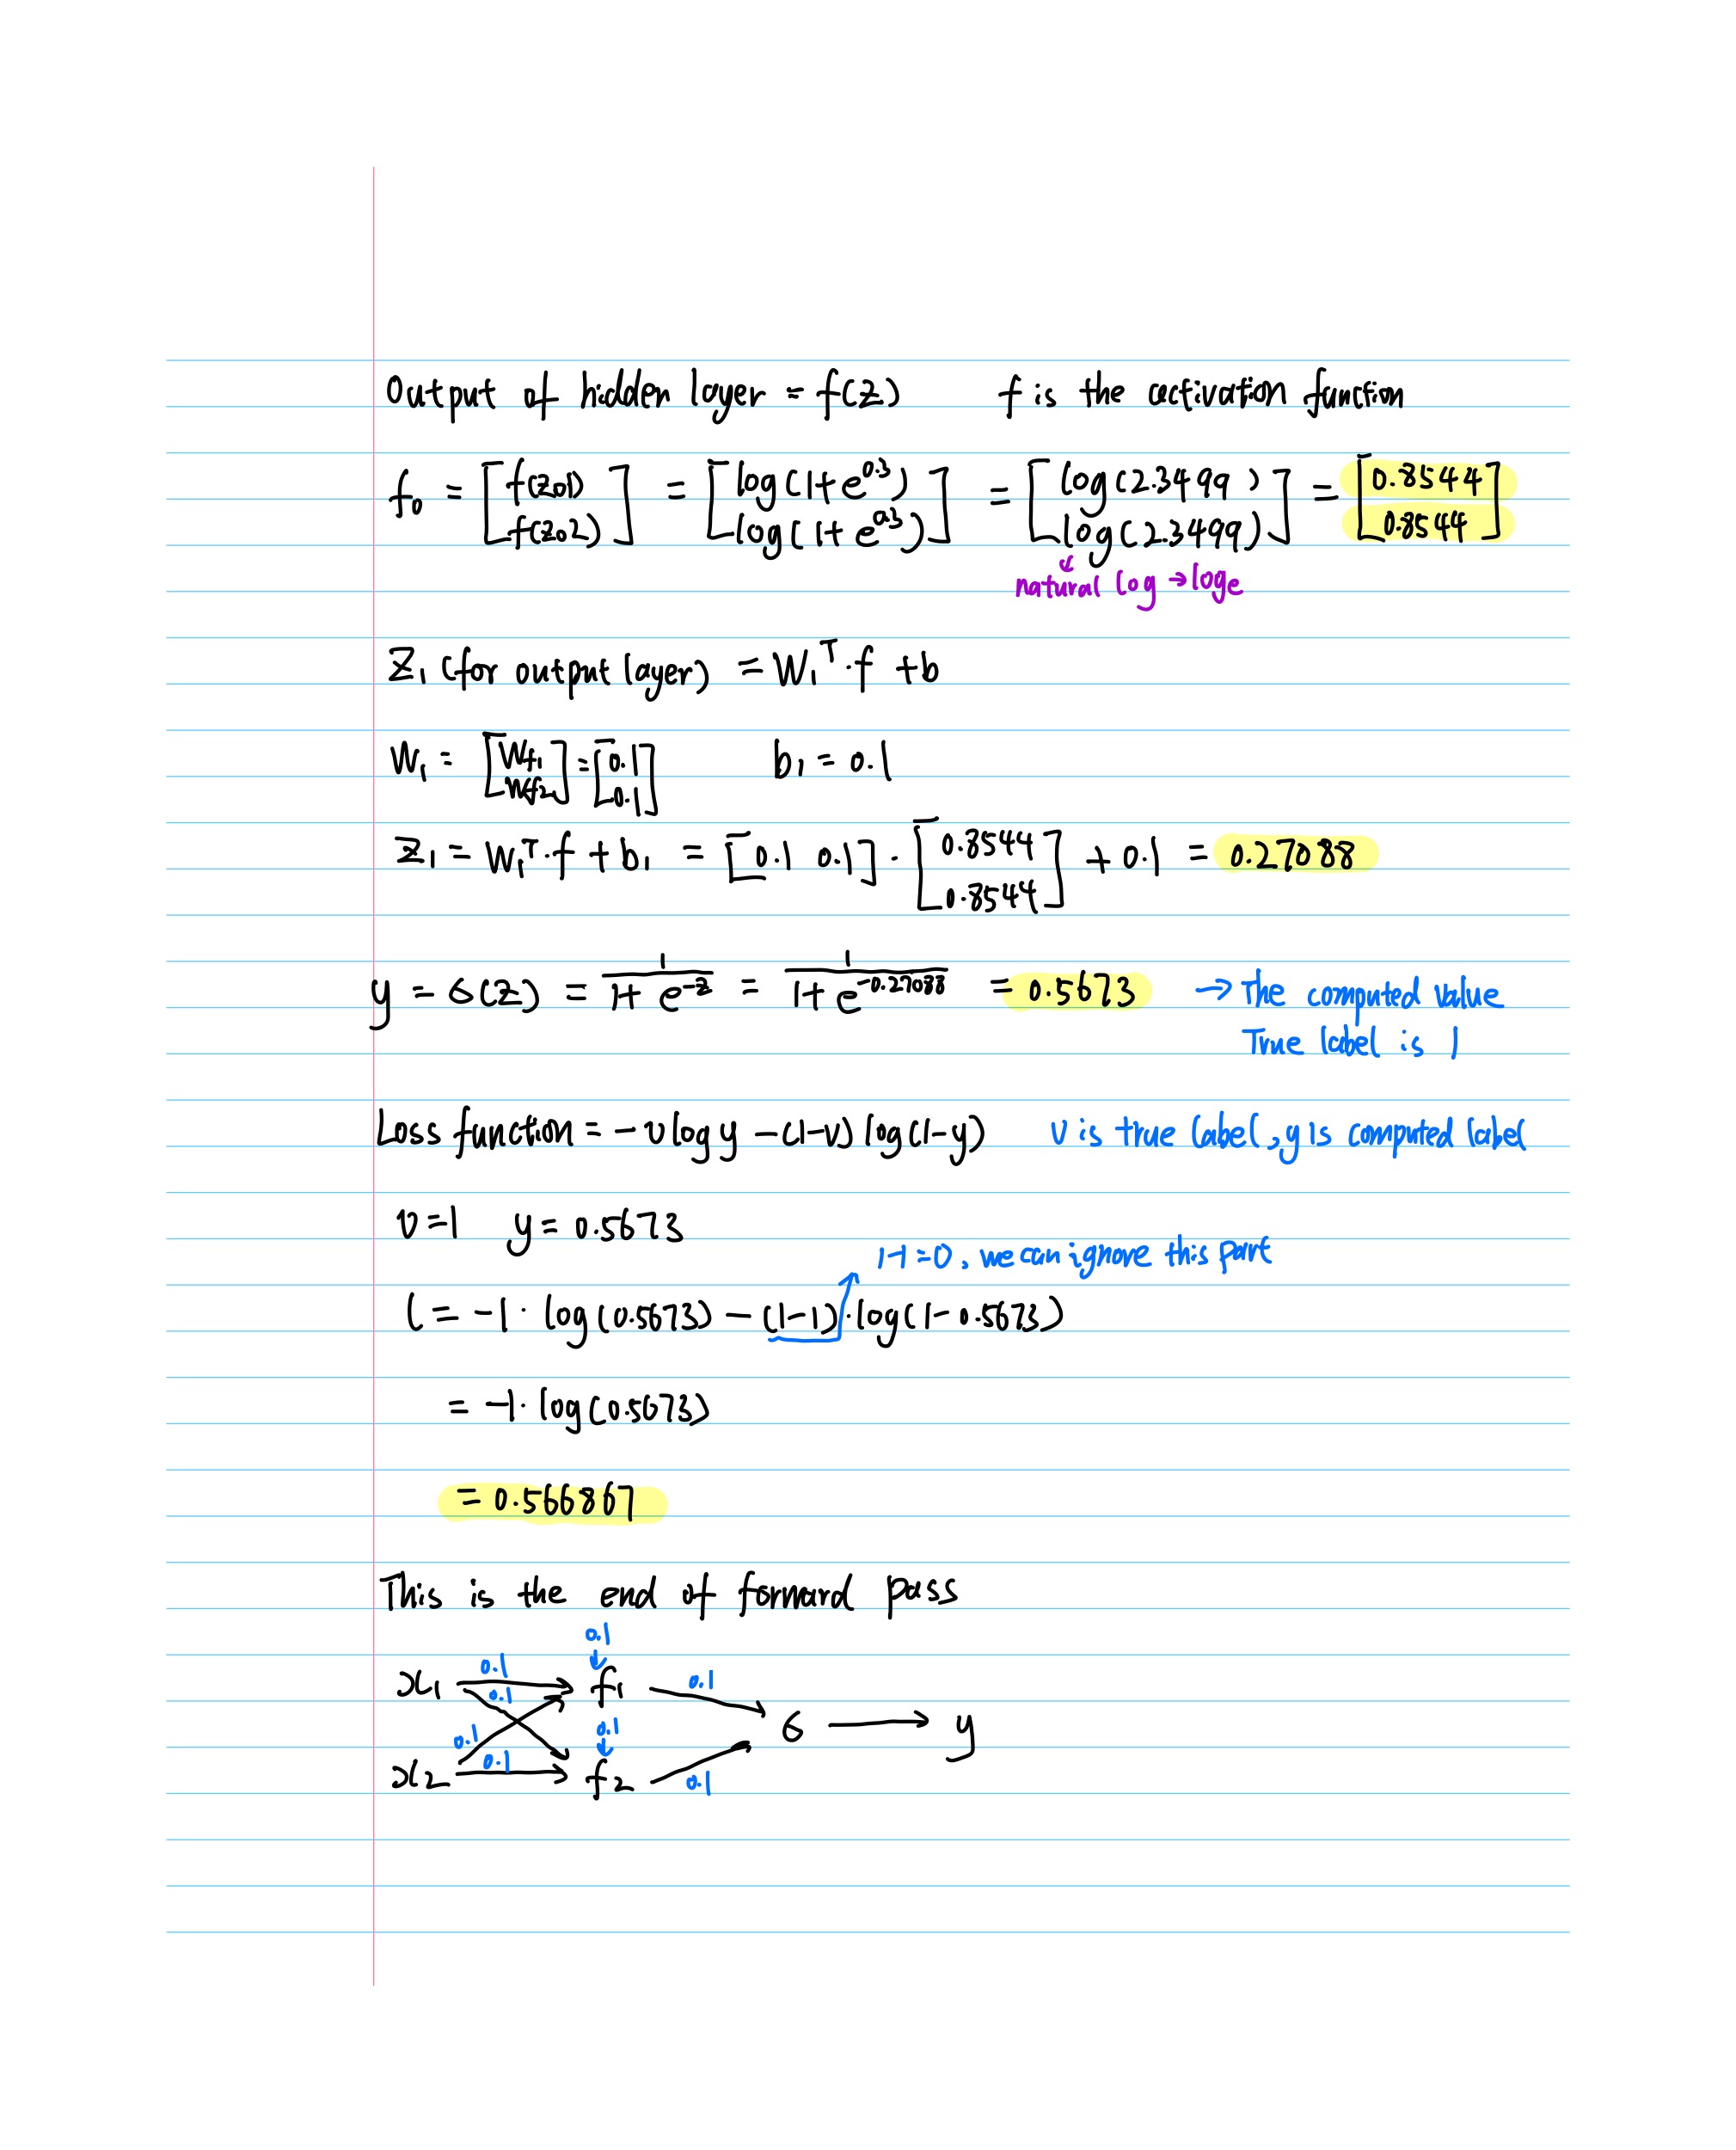 Output of hidden layer = f(z)    f is the activation function
f₀ = [f(z01) f(z02)] = [log(1+e^0.3) log(1+e^0.3)] = [log(2.3499) log(2.3499)] = [0.8544 0.8544]
natural log → loge
Z₁ (for output layer) = W₁ᵀ·f + b
W₁ = [Wf₁ Wf₂] = [0.1 0.1]    b₁ = 0.1
Z₁ = W₁ᵀ·f + b₁ = [0.1 0.1]·[0.8544 0.8544] + 0.1 = 0.27088
y = 6(z) = 1/(1+e^-z) = 1/(1+e^-0.27088) = 0.5673 → The computed value
True label is 1
Loss function = -v log y - (1-v) log(1-y)    v is true label, y is computed label
v=1    y=0.5673
1-1=0, we can ignore this part
l = -1·log(0.5673) - (1-1)·log(1-0.5673)
= -1·log(0.5673)
= 0.566867
This is the end of forward pass
0.1
x₁ 0.1 0.1 f₁ 0.1
0.1 0.1 6 → y
x₂ 0.1 f₂ 0.1